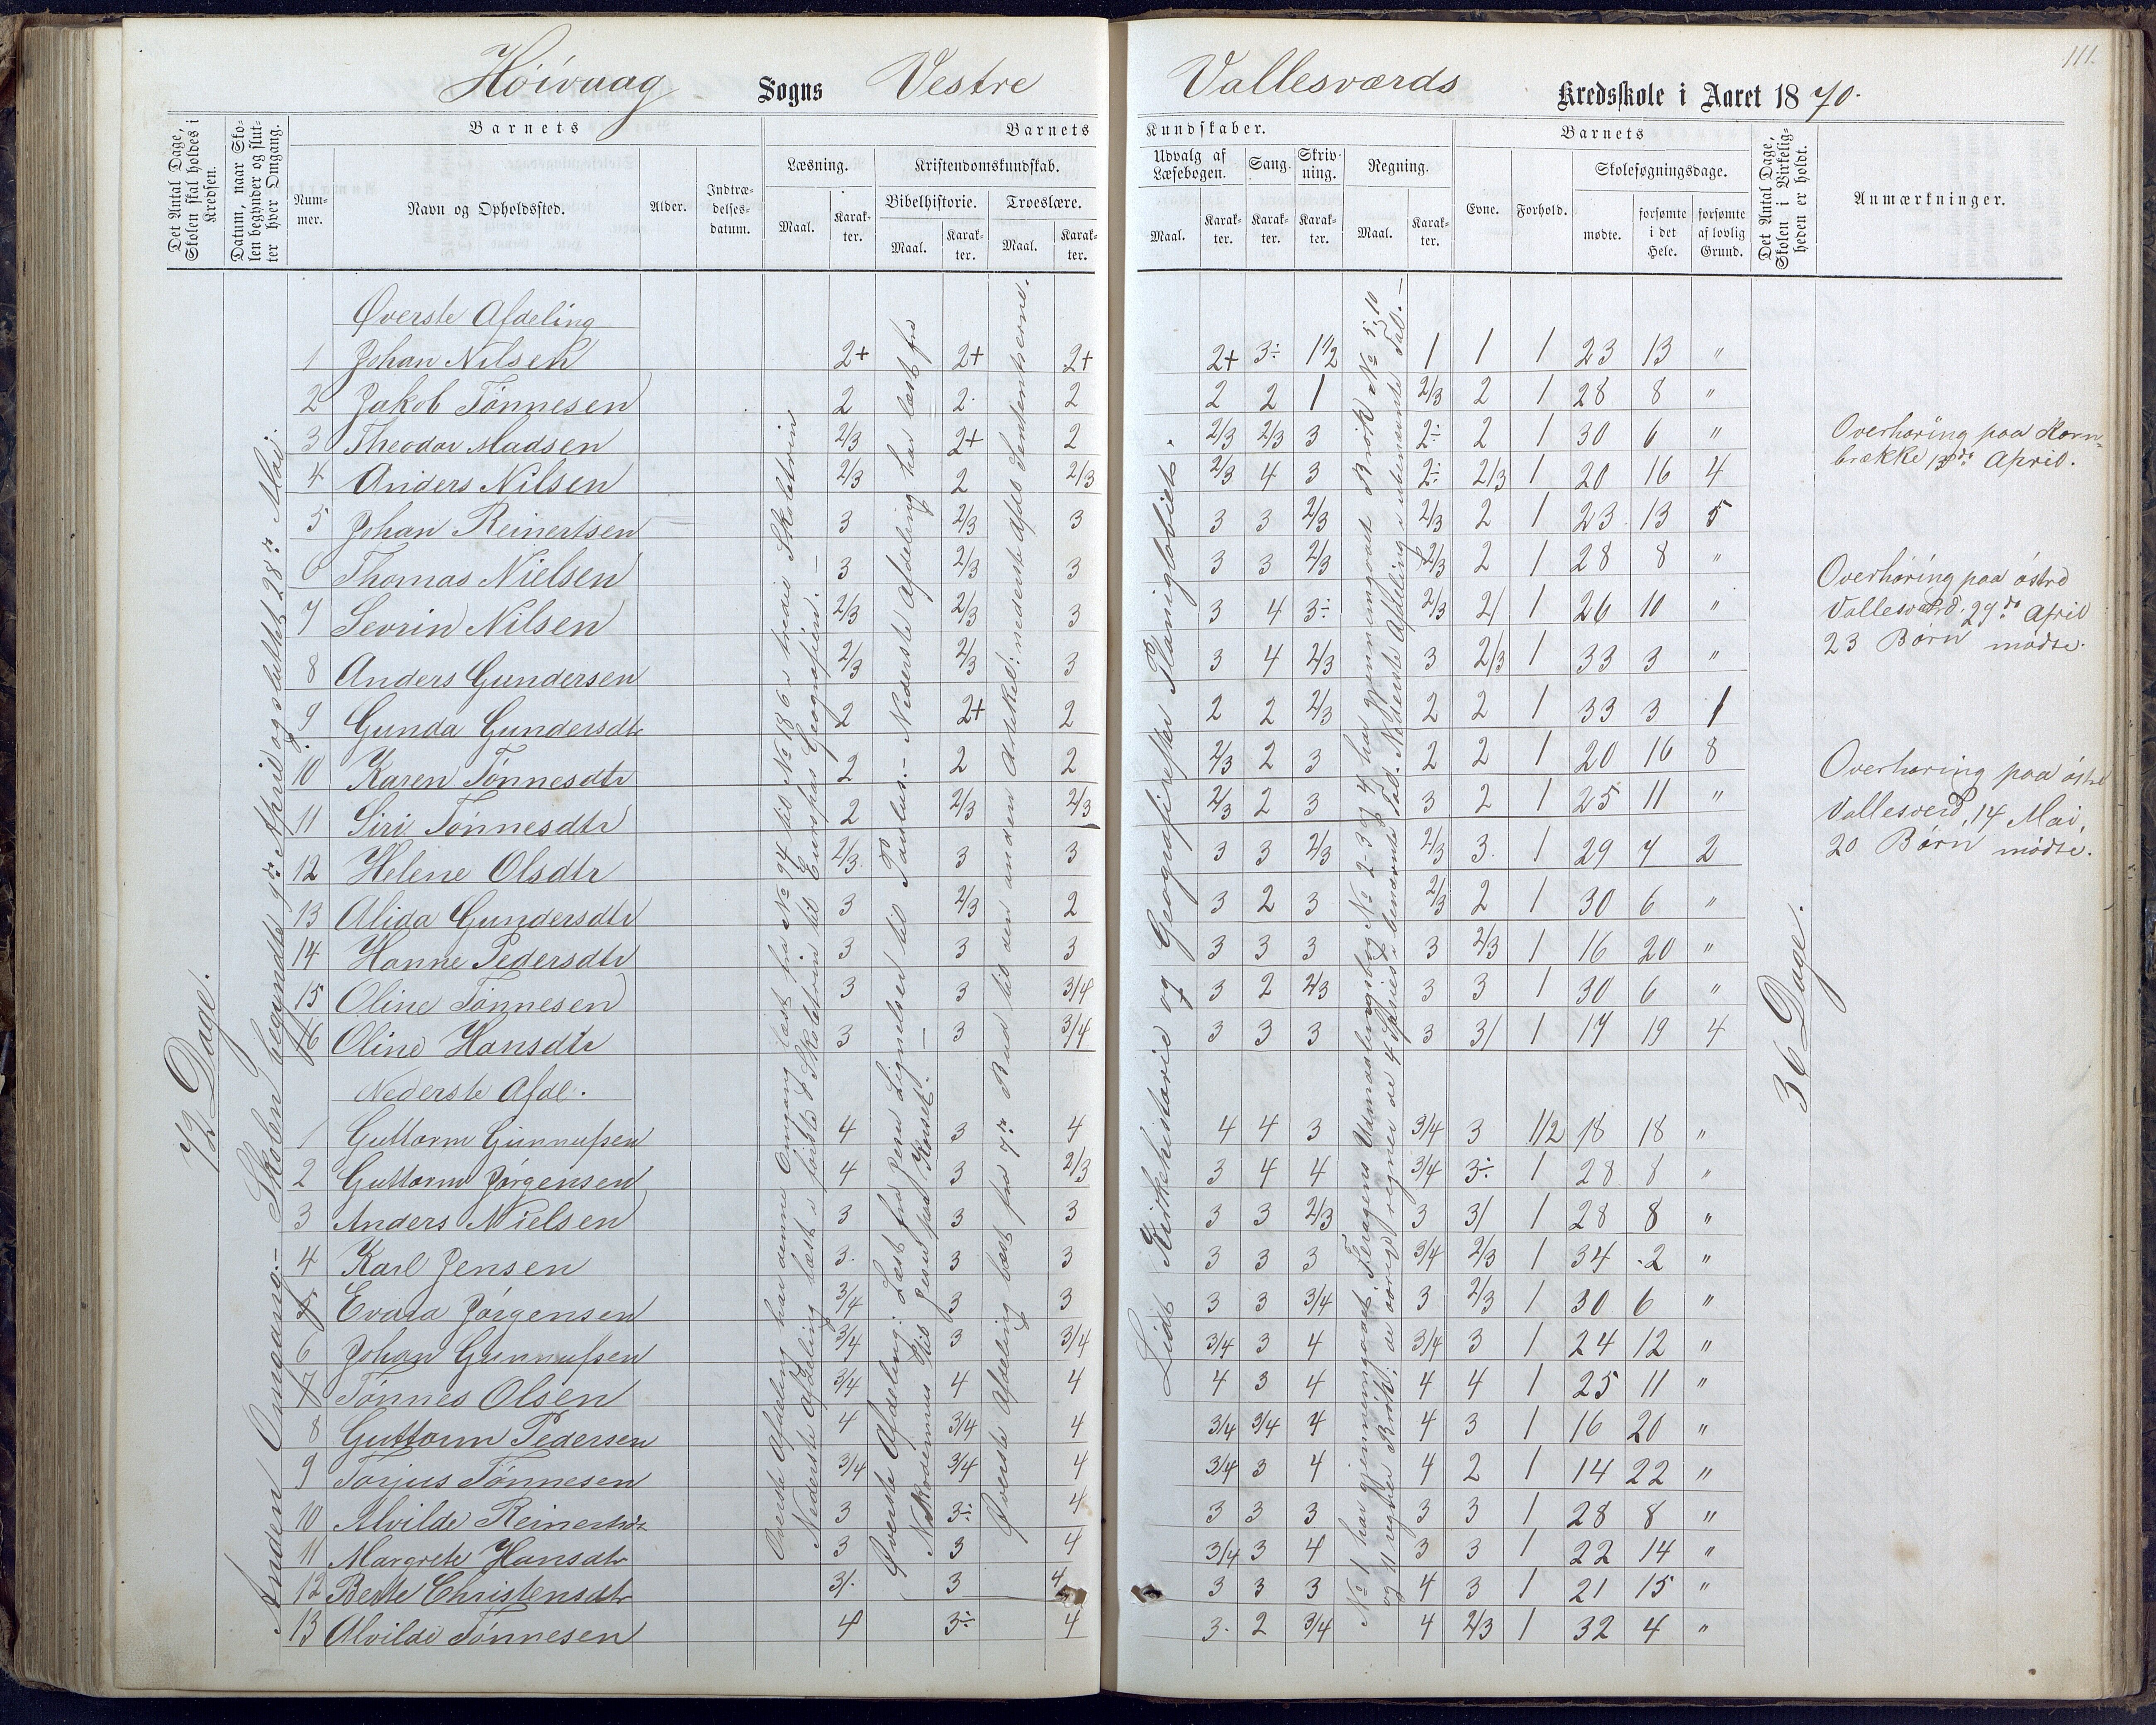 111.
Höivaag Sogns Vestre Vallesværds Kredsskole i Aaret 1870.
Det Antal Dage, Skolen skal holdes i Kredsen.
Datum, naar Skolen begynder og slutter hver Omgang.
Barnets
Nummer.
Navn og Opholdssted.
Alder.
Indtrædelsesdatum.
Barnets Kundskaber.
Læsning.
Maal.
Karakter.
Kristendomskundskab.
Bibelhistorie.
Maal.
Karakter.
Troeslære.
Maal.
Karakter.
Udvalg af Læsebogen.
Maal.
Karakter.
Sang.
Karakter.
Skrivning.
Karakter.
Regning.
Maal.
Karakter.
Barnets
Evne.
Forhold.
Skolesøgningsdage.
mødte.
forsømte i det Hele.
forsømte af lovlig Grund.
Det Antal Dage, Skolen i Virkeligheden er holdt.
Anmærkninger.
72 Dage.
Anden Omgang.- Skolen begyndte 9de April og sluttet 28de Mai.
Øverste Afdeling
1 Johan Nilsen 2+ 2+ 2+ 2+ 3÷ 1 1/2 1 1 1 23 13 "
2 Jakob Tönnesen 2 2. 2 2 2 1 2/3 2 1 28 8 "
3 Theodor Madsen 2/3 2+ 2 2/3 2/3 3 2÷ 2 1 30 6 "
4 Anders Nilsen 2/3 2 2/3 2/3 4 3 2÷ 2/3 1 20 16 4
5 Johan Reinertsen 3 2/3 3 3 3 2/3 2/3 2 1 23 13 5
6 Thomas Nielsen 3 2/3 3 3 3 2/3 2/3 2 1 28 8 "
7 Sevrin Nilsen 2/3 2/3 3 3 4 3÷ 2/3 2/ 1 26 10 "
8 Anders Gundersen 2/3 2/3 3 3 4 2/3 3 2/3 1 33 3 "
9 Gunda Gundersdtr 2 2+ 2 2 2 2/3 2 2 1 33 3 1
10 Karen Tönnesdtr 2 2 2 2/3 2 3 2 2 1 20 16 8
11 Siri Tönnesdtr 2 2/3 2/3 2/3 2 3 3 2 1 25 11 "
12 Helene Olsdtr 2/3. 3 3 3 3 2/3 2/3 3. 1 29 7 2
13 Alida Gundersdtr 3 2/3 2 3 2 3 2/3 2 1 30 6 "
14 Hanne Pedersdtr 3 3 3 3 3 3 3 2/3 1 16 20 "
15 Oline Tönnesen 3 3 3/4 3 2 2/3 3 3 1 30 6 "
16 Oline Hansdtr 3 3 3/4 3 3 3 3 3/ 1 17 19 4
Nederste Afdl.
1 Guttorm Gunnufsen 4 3 4 4 4 3 3/4 3 1/2 18 18 "
2 Guttorm Jörgensen 4 3 2/3 3 4 4 3/4 3÷ 1 28 8 "
3 Anders Nielsen 3 3 3 3 3 2/3 3 3/ 1 28 8 "
4 Karl Jensen 3. 3 3 3 3 3 3/4 2/3 1 34 2 "
5 Evara Jörgensen 3/4 3 3 3 3 3/4 3 2/3 1 30 6 "
6 Johan Gunnufsen 3/4 3 3/4 3/4 3 4 3/4 3 1 24 12 "
7 Tönnes Olsen 3/4 4 4 4 3 4 4 4 1 25 11 "
8 Guttorm Pedersen 4 3/4 4 3/4 3/4 4 4 3 1 16 20 "
9 Torjus Tönnesen 3/4 3/4 4 3/4 3 4 4 2 1 14 22 "
10 Alvilde Reinertsdtr 3 3÷ 4 3 3 3 3 3 1 28 8 "
11 Margrete Hansdtr 3 3 4 3/4 3 4 3 3 1 22 14 "
12 Berte Christensdtr 3/. 3 4 3 3 3 4 3 1 21 15 "
13 Alvilde Tönnesen 4 3÷ 4 3. 2 3/4 4 2/3 1 32 4 "
Øverste Afdeling har denne Omgang læst fra No 94 til No 186 i tredie Skoletrin
Nederste Afdeling læst i förste Skoletrin til Europas Geografien. —
Øverste Afdeling: Læst fra Jesu Lignelser til Paulus. – Nederste Afdeling har læst fra
Nikodemus til Jesus paa Korset. —
Øverste Afdeling læst fra 7de Bud til den anden Artikel: nederste Afdl. Sendentserne.
Lidt Kirkehistorie og Geografiske Planiglobiet.
No 1 har gjennemgaaet Feragens Udmaalingsbog No 2-3 og 4 har gjennemgaaet Brök No 5, 10
og 11 regner Brök: de övrige regner de 4 Species i benævnte Tal. Nederste Afdeling i ubenævnte Tal. —
36 Dage.
Overhöring paa Korn-
brække 13de April.
Overhöring paa östre
Vallesværd, 29de April
23 Börn mödte.
Overhöring paa östre
Vallesverd, 14 Mai,
20 Börn mödte.